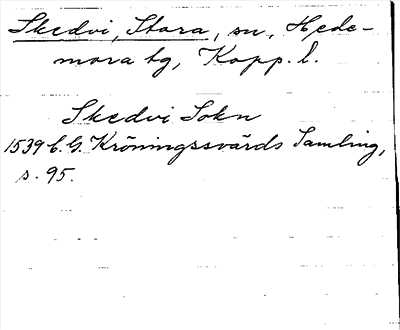 Skedvi, Stora, sn, Hede-
mora tg, Kopp. l.
Skedvi Sokn
1539 C. G. Kröningssvärds Samling,
s. 95.